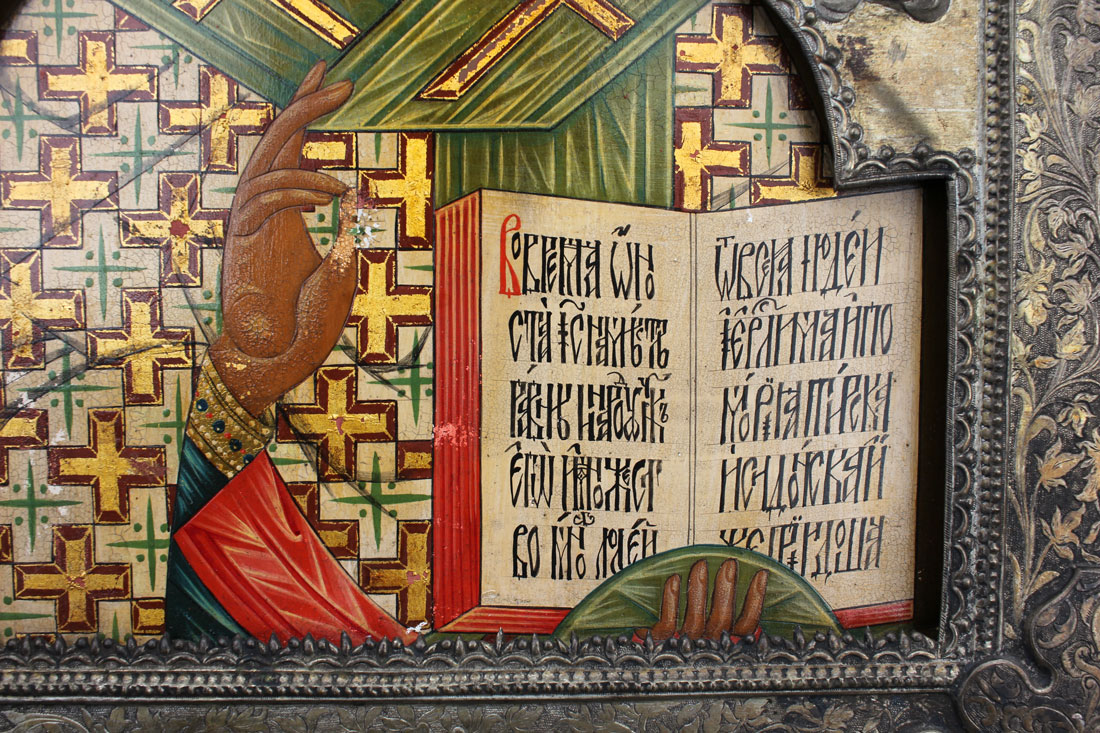 Во времѧ ѻ҆но
ста̀ і҆с҃ на мѣстѣ
ра́внѣ и҆ наро́дъ
є҆гѡ̀ и҆ мно́жест
во мно́го люде́й
ѿ всеѧ і҆ꙋде́и
і҆ерⷭ҇лима и҆ по
мо́рїѧ ти́рска
и҆ сїдо́нска и҆
же прїидоша